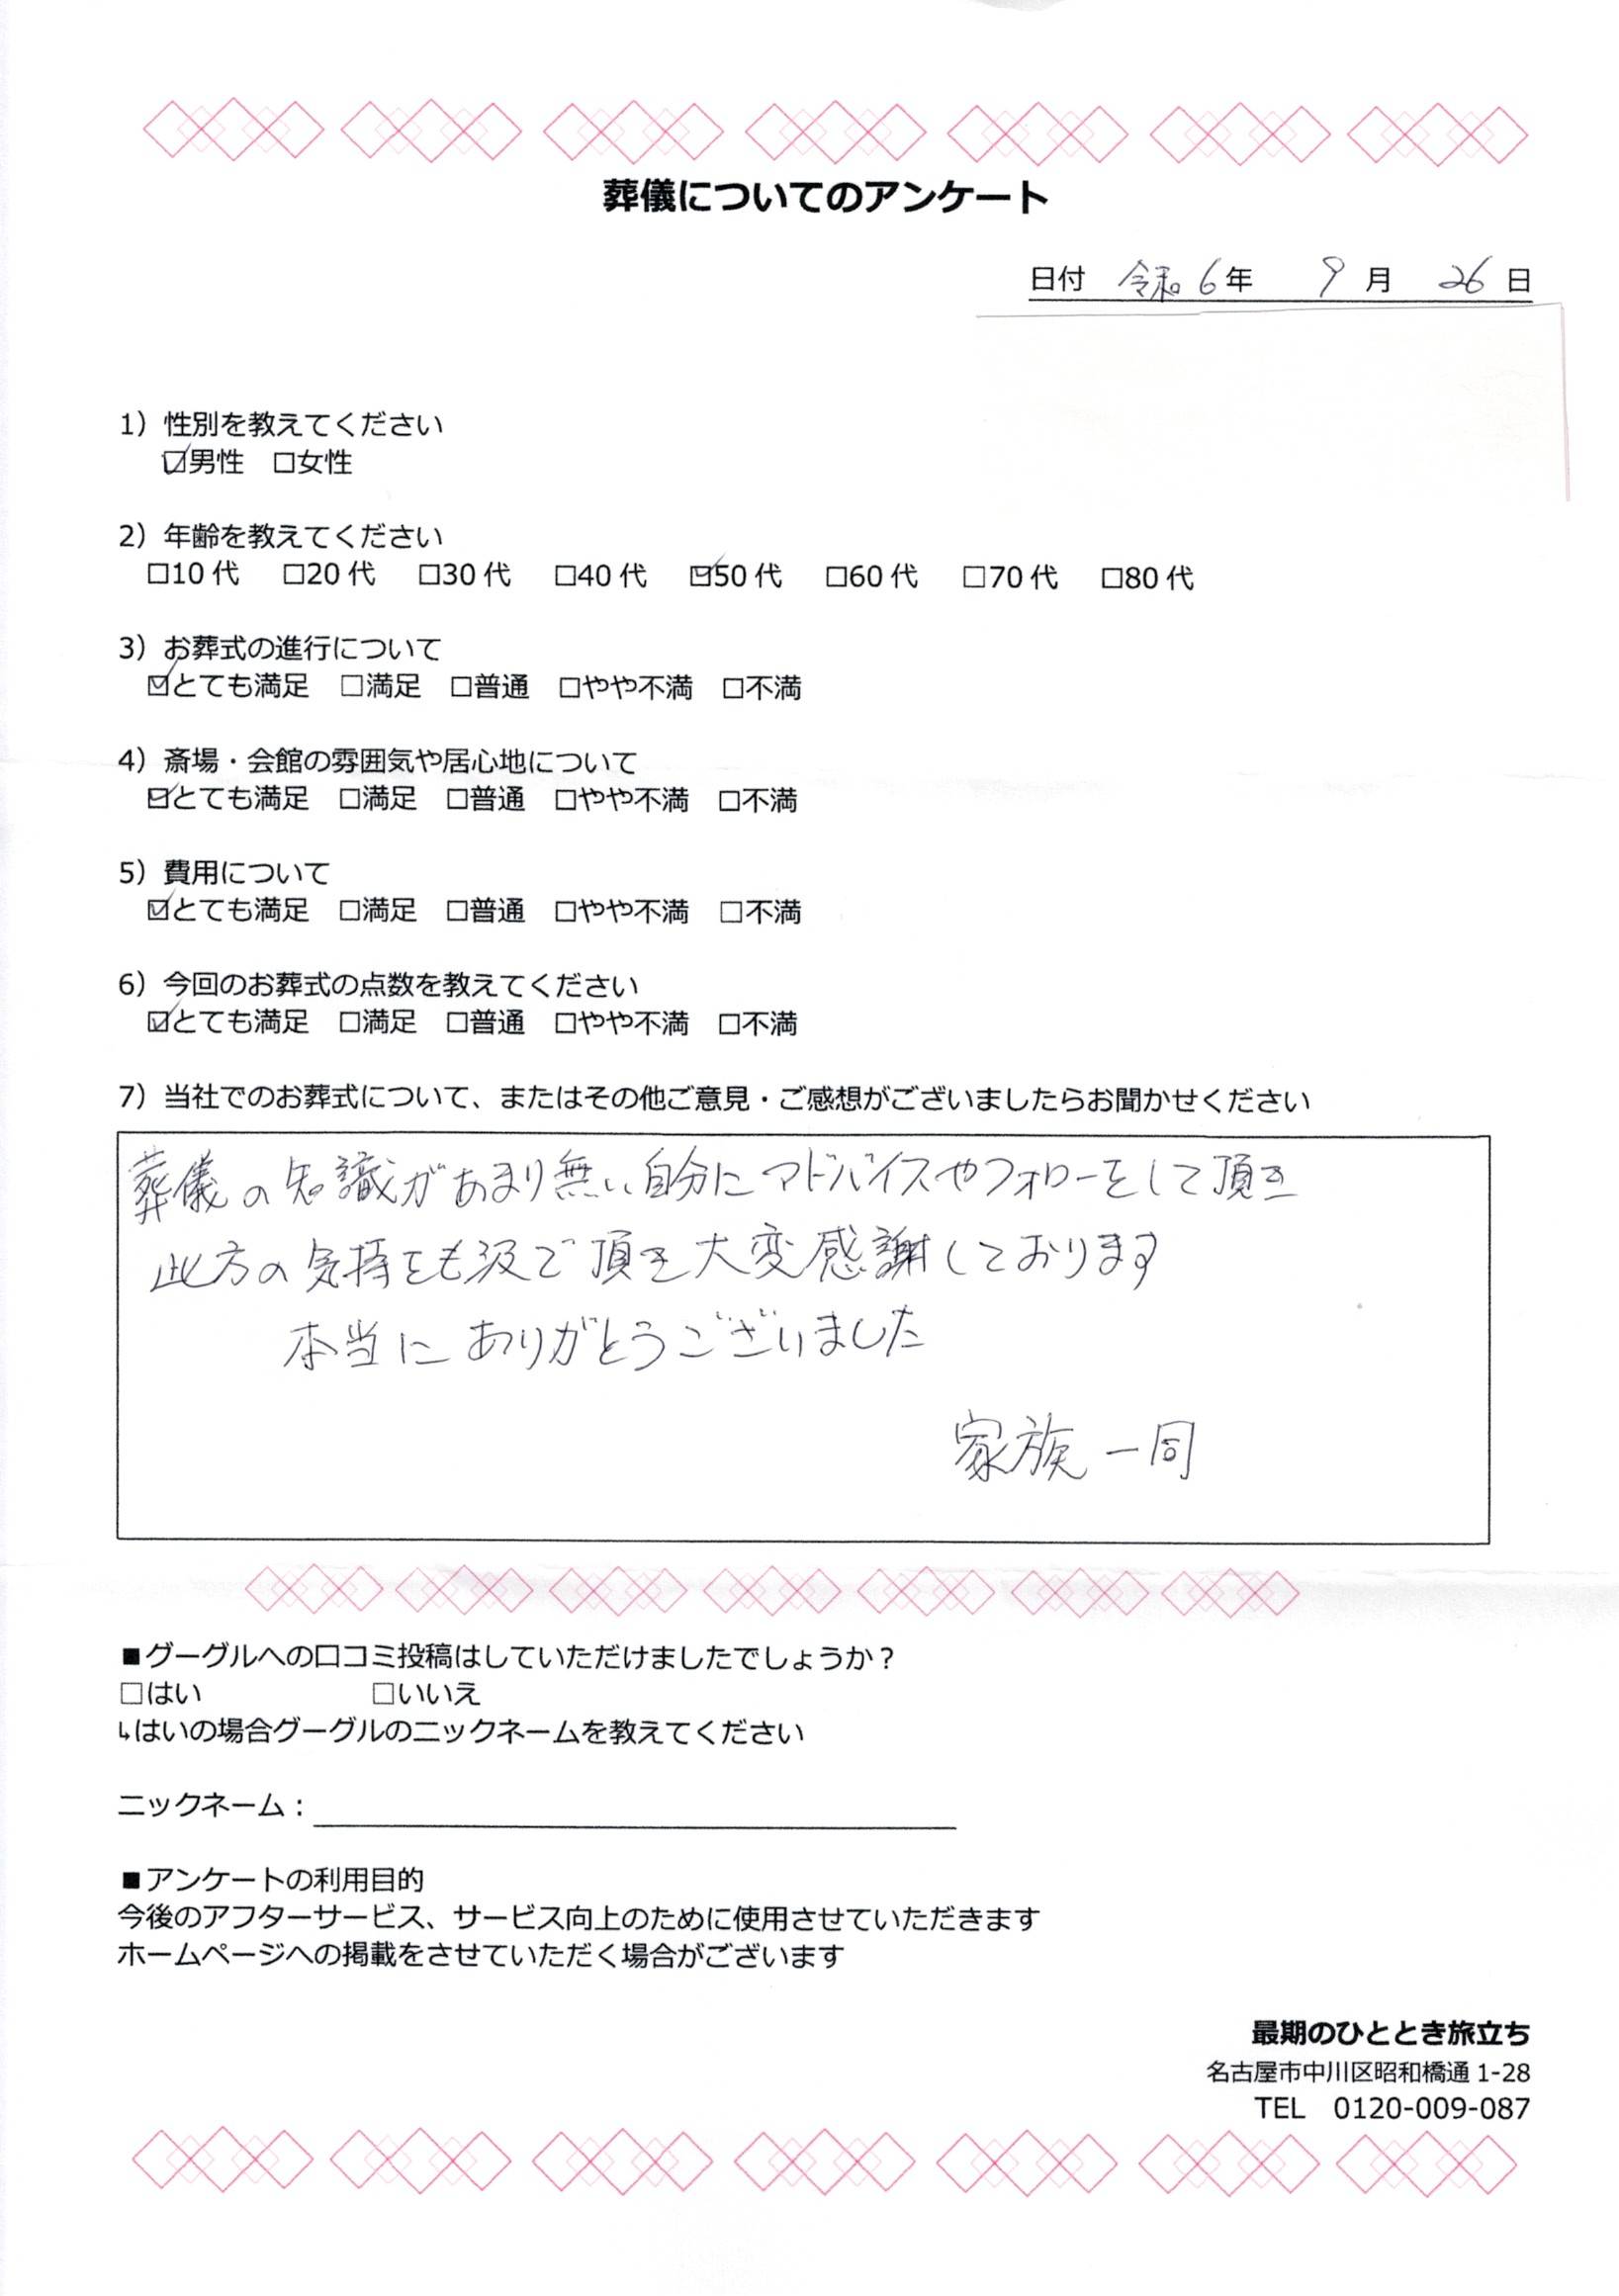 葬儀についてのアンケート
日付 令和6年 9月 26日
1）性別を教えてください
☑男性 □女性
2）年齢を教えてください
□10代 □20代 □30代 □40代 ☑50代 □60代 □70代 □80代
3）お葬式の進行について
☑とても満足 □満足 □普通 □やや不満 □不満
4）斎場・会館の雰囲気や居心地について
☑とても満足 □満足 □普通 □やや不満 □不満
5）費用について
☑とても満足 □満足 □普通 □やや不満 □不満
6）今回のお葬式の点数を教えてください
☑とても満足 □満足 □普通 □やや不満 □不満
7）当社でのお葬式について、またはその他ご意見・ご感想がございましたらお聞かせください
葬儀の知識があまり無い自分にアドバイスやフォローをして頂き
此方の気持をも汲で頂き大変感謝しております
本当にありがとうございました
家族一同
■グーグルへの口コミ投稿はしていただけましたでしょうか？
□はい □いいえ
↳はいの場合グーグルのニックネームを教えてください
ニックネーム：
■アンケートの利用目的
今後のアフターサービス、サービス向上のために使用させていただきます
ホームページへの掲載をさせていただく場合がございます
最期のひととき旅立ち
名古屋市中川区昭和橋通1-28
TEL 0120-009-087